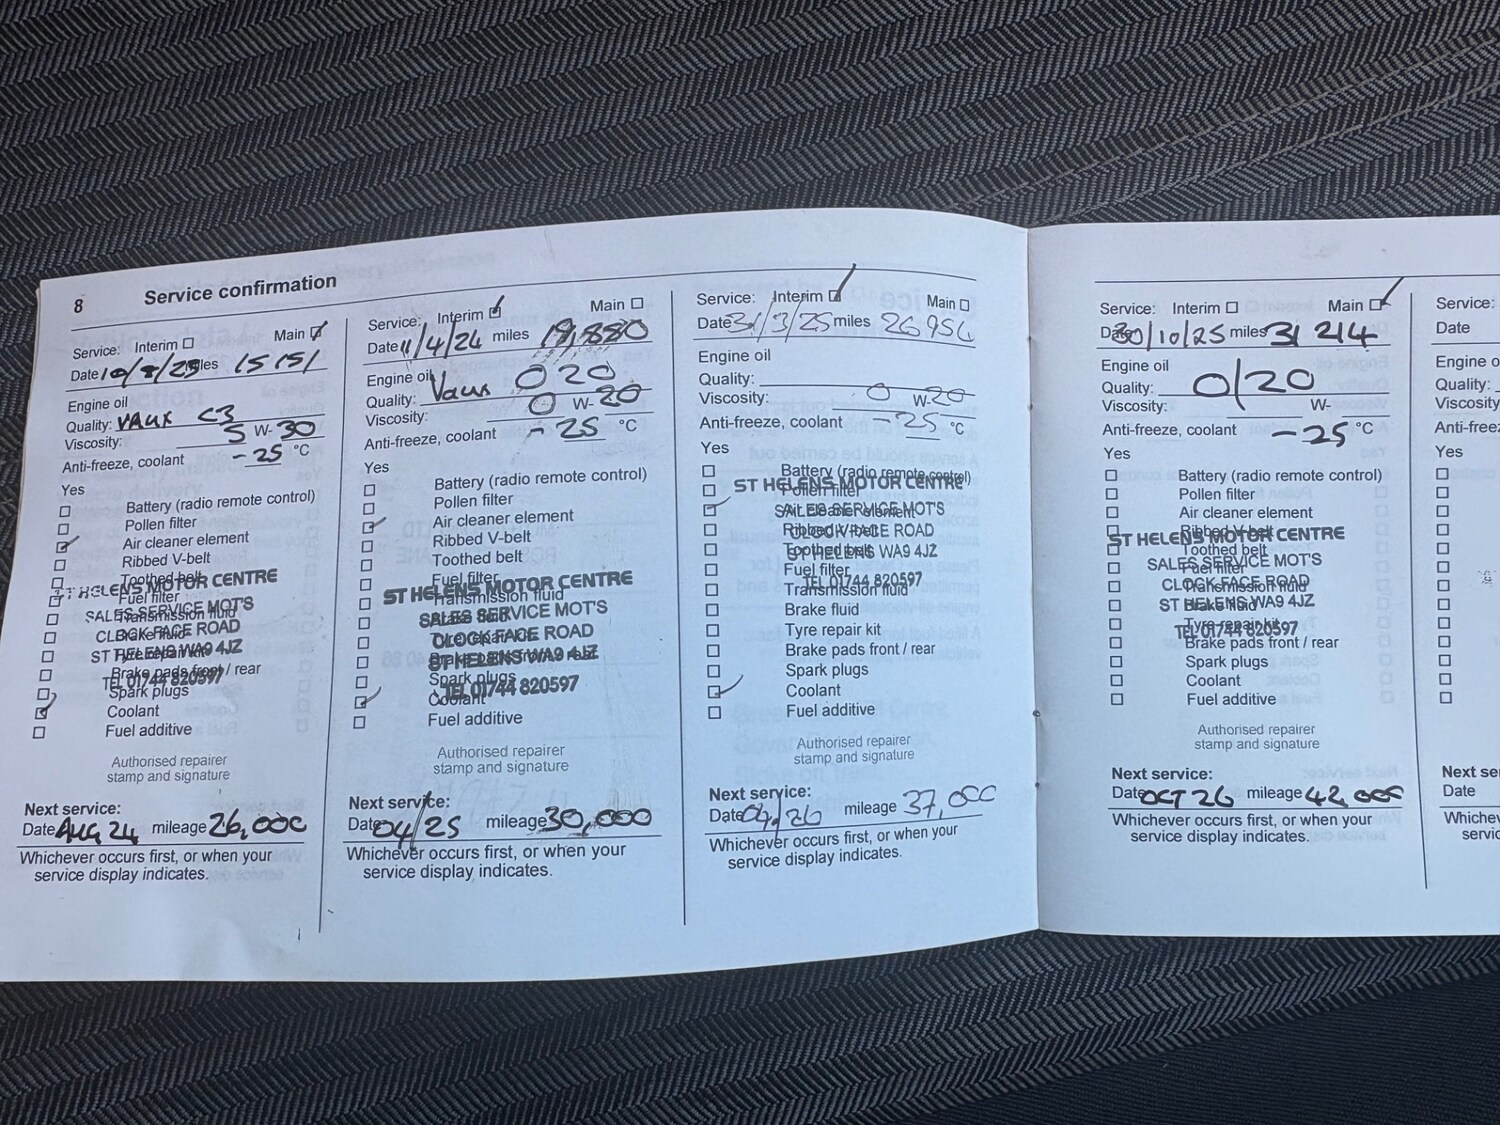 8 Service confirmation
Service: Interim Main
Date miles 15151
Engine oil
Quality: VAUX C3
Viscosity: 5 W-30
Anti-freeze, coolant -25 °C
Yes
Battery (radio remote control)
Pollen filter
Air cleaner element
Ribbed V-belt
Toothed belt
ST HELENS MOTOR CENTRE
Fuel filter
Transmission fluid
SALES SERVICE MOT'S
Brake fluid
CLOCK FACE ROAD
Tyre repair kit
ST HELENS WA9 4JZ
Brake pads front / rear
TEL 01744 820597
Spark plugs
Coolant
Fuel additive
Authorised repairer
stamp and signature
Next service:
Date AUG 24 mileage 26,000
Whichever occurs first, or when your
service display indicates.
Service: Interim Main
Date 11/4/24 miles 19,880
Engine oil
Quality: Vaux 0 20
Viscosity: 0 W-20
Anti-freeze, coolant -25 °C
Yes
Battery (radio remote control)
Pollen filter
Air cleaner element
Ribbed V-belt
Toothed belt
Fuel filter
ST HELENS MOTOR CENTRE
Transmission fluid
SALES SERVICE MOT'S
Brake fluid
CLOCK FACE ROAD
Tyre repair kit
Brake pads front / rear
ST HELENS WA9 4JZ
Spark plugs
TEL 01744 820597
Coolant
Fuel additive
Authorised repairer
stamp and signature
Next service:
Date 04/25 mileage 30,000
Whichever occurs first, or when your
service display indicates.
Service: Interim Main
Date 31/3/25 miles 26956
Engine oil
Quality:
Viscosity: 0 W-20
Anti-freeze, coolant -25 °C
Yes
Battery (radio remote control)
ST HELENS MOTOR CENTRE
Pollen filter
Air cleaner element
SALES SERVICE MOT'S
Ribbed V-belt
CLOCK FACE ROAD
Toothed belt
ST HELENS WA9 4JZ
Fuel filter
TEL 01744 820597
Transmission fluid
Brake fluid
Tyre repair kit
Brake pads front / rear
Spark plugs
Coolant
Fuel additive
Authorised repairer
stamp and signature
Next service:
Date 04/26 mileage 37,000
Whichever occurs first, or when your
service display indicates.
Service: Interim Main
Date 30/10/25 miles 31 214
Engine oil
Quality: 0/20
Viscosity: W-
Anti-freeze, coolant -25 °C
Yes
Battery (radio remote control)
Pollen filter
Air cleaner element
Ribbed V-belt
ST HELENS MOTOR CENTRE
Toothed belt
SALES SERVICE MOT'S
Fuel filter
CLOCK FACE ROAD
Transmission fluid
ST HELENS WA9 4JZ
Brake fluid
Tyre repair kit
TEL 01744 820597
Brake pads front / rear
Spark plugs
Coolant
Fuel additive
Authorised repairer
stamp and signature
Next service:
Date OCT 26 mileage 42,000
Whichever occurs first, or when your
service display indicates.
Service:
Date
Engine
Quality:
Viscosity
Yes
Date